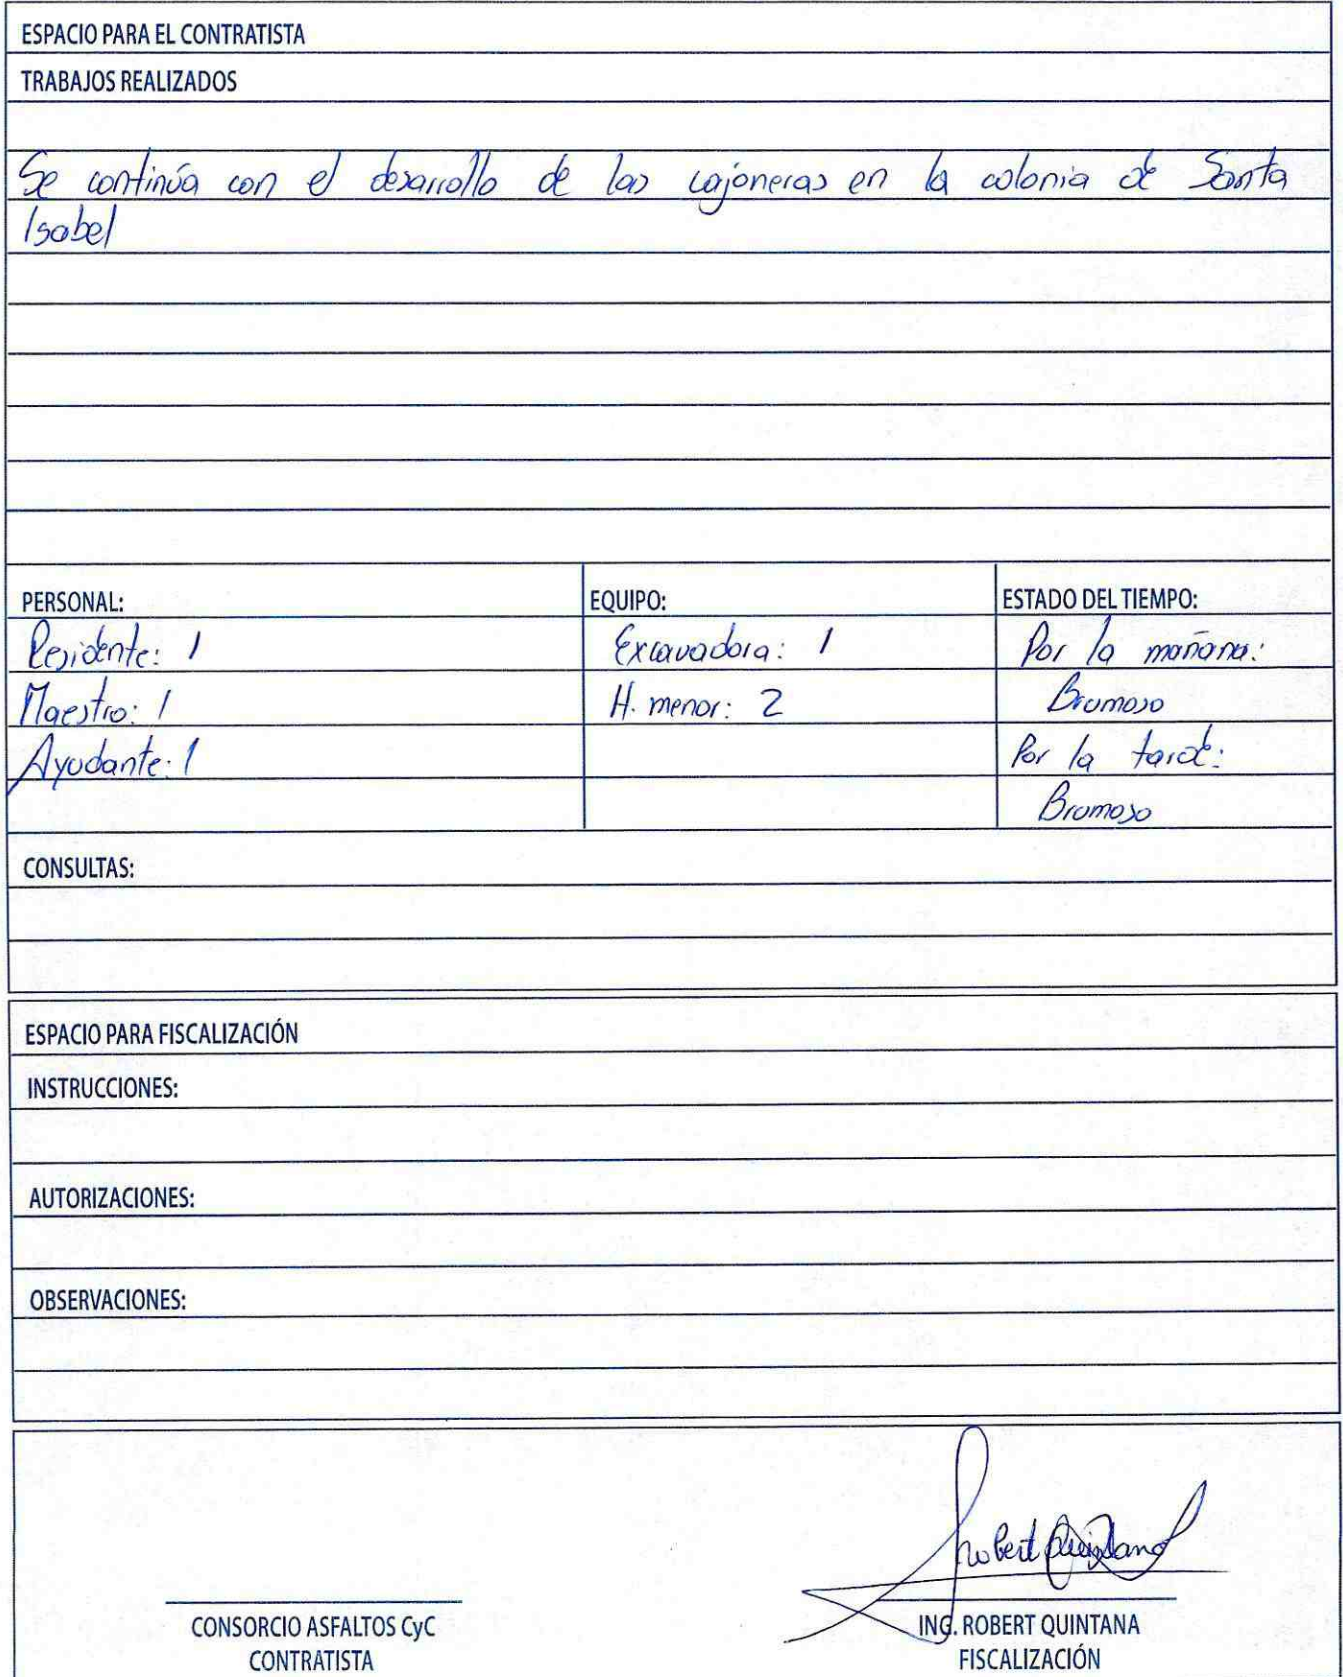 ESPACIO PARA EL CONTRATISTA
TRABAJOS REALIZADOS
Se continúa con el desarrollo de las cajoneras en la colonia de Santa
Isabel
PERSONAL:
Residente: 1
Maestro: 1
Ayudante: 1
EQUIPO:
Excavadora: 1
H. menor: 2
ESTADO DEL TIEMPO:
Por la mañana:
Brumoso
Por la tarde:
Brumoso
CONSULTAS:
ESPACIO PARA FISCALIZACIÓN
INSTRUCCIONES:
AUTORIZACIONES:
OBSERVACIONES:
CONSORCIO ASFALTOS CyC
CONTRATISTA
Robert Quintana
ING. ROBERT QUINTANA
FISCALIZACIÓN